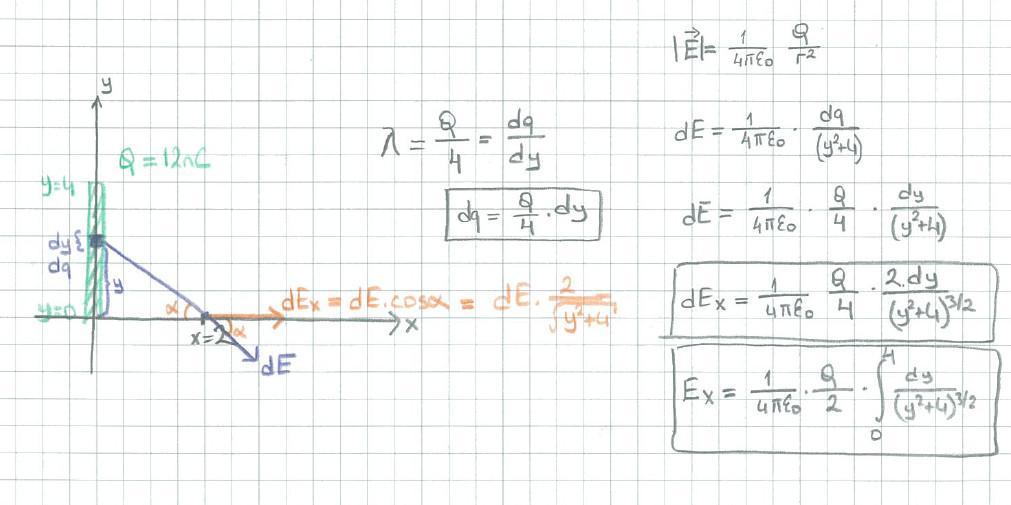 y
Q = 12nC
y=4
dy{
dq
y
y=0
α
x=2
α
x
dE
dEx = dE.cosα = dE. 2/√(y²+4)
λ = Q/4 = dq/dy
dq = Q/4 . dy
|E⃗| = 1/4πε₀ Q/r²
dE = 1/4πε₀ . dq/(y²+4)
dE = 1/4πε₀ . Q/4 . dy/(y²+4)
dEx = 1/4πε₀ Q/4 . 2.dy/(y²+4)^3/2
Ex = 1/4πε₀ . Q/2 . ∫₀⁴ dy/(y²+4)^3/2